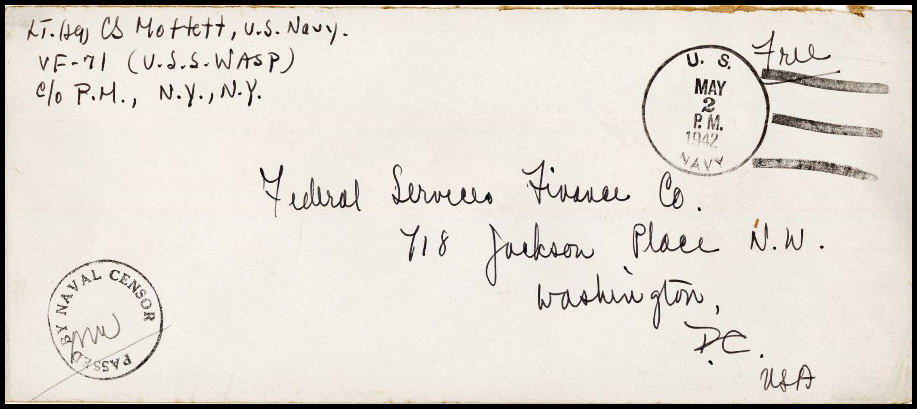 LT. (jg) CS Moffett, U.S. Navy.
VF-71 (U.S.S. WASP)
c/o P.M., N.Y., N.Y.
Free
U. S.
MAY
2
P.M.
1942
NAVY
Federal Services Finance Co.
718 Jackson Place N.W.
Washington,
D.C.
USA
PASSED BY NAVAL CENSOR